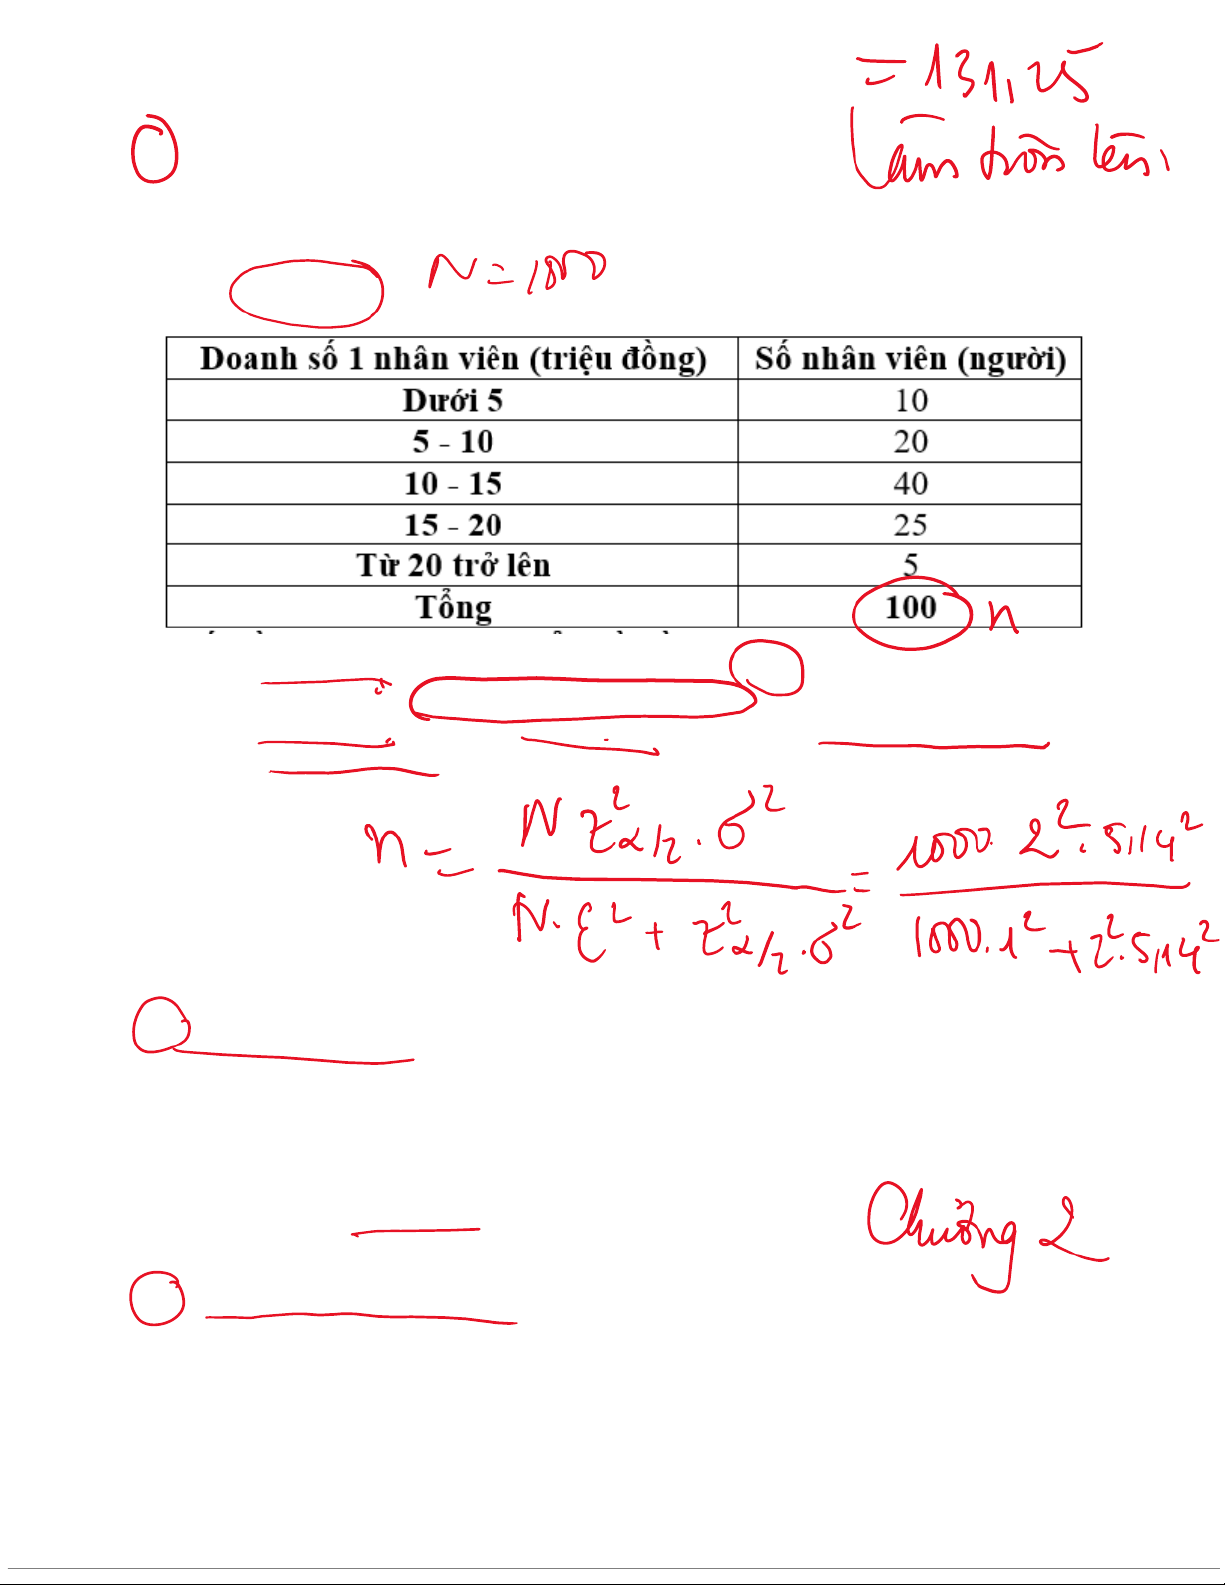 = 131,25
làm tròn lên,
N = 1000
Doanh số 1 nhân viên (triệu đồng) Số nhân viên (người)
Dưới 5 10
5 - 10 20
10 - 15 40
15 - 20 25
Từ 20 trở lên 5
Tổng 100 n
n = N z²α/2 . σ² / N. ε² + z²α/2 . σ² = 1000. 2² . 5,14² / 1000. 1² + 2² . 5,14²
Chương 2